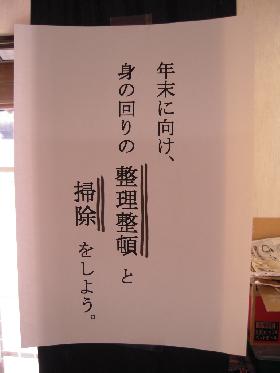 年末に向け、
身の回りの整理整頓と
掃除をしよう。